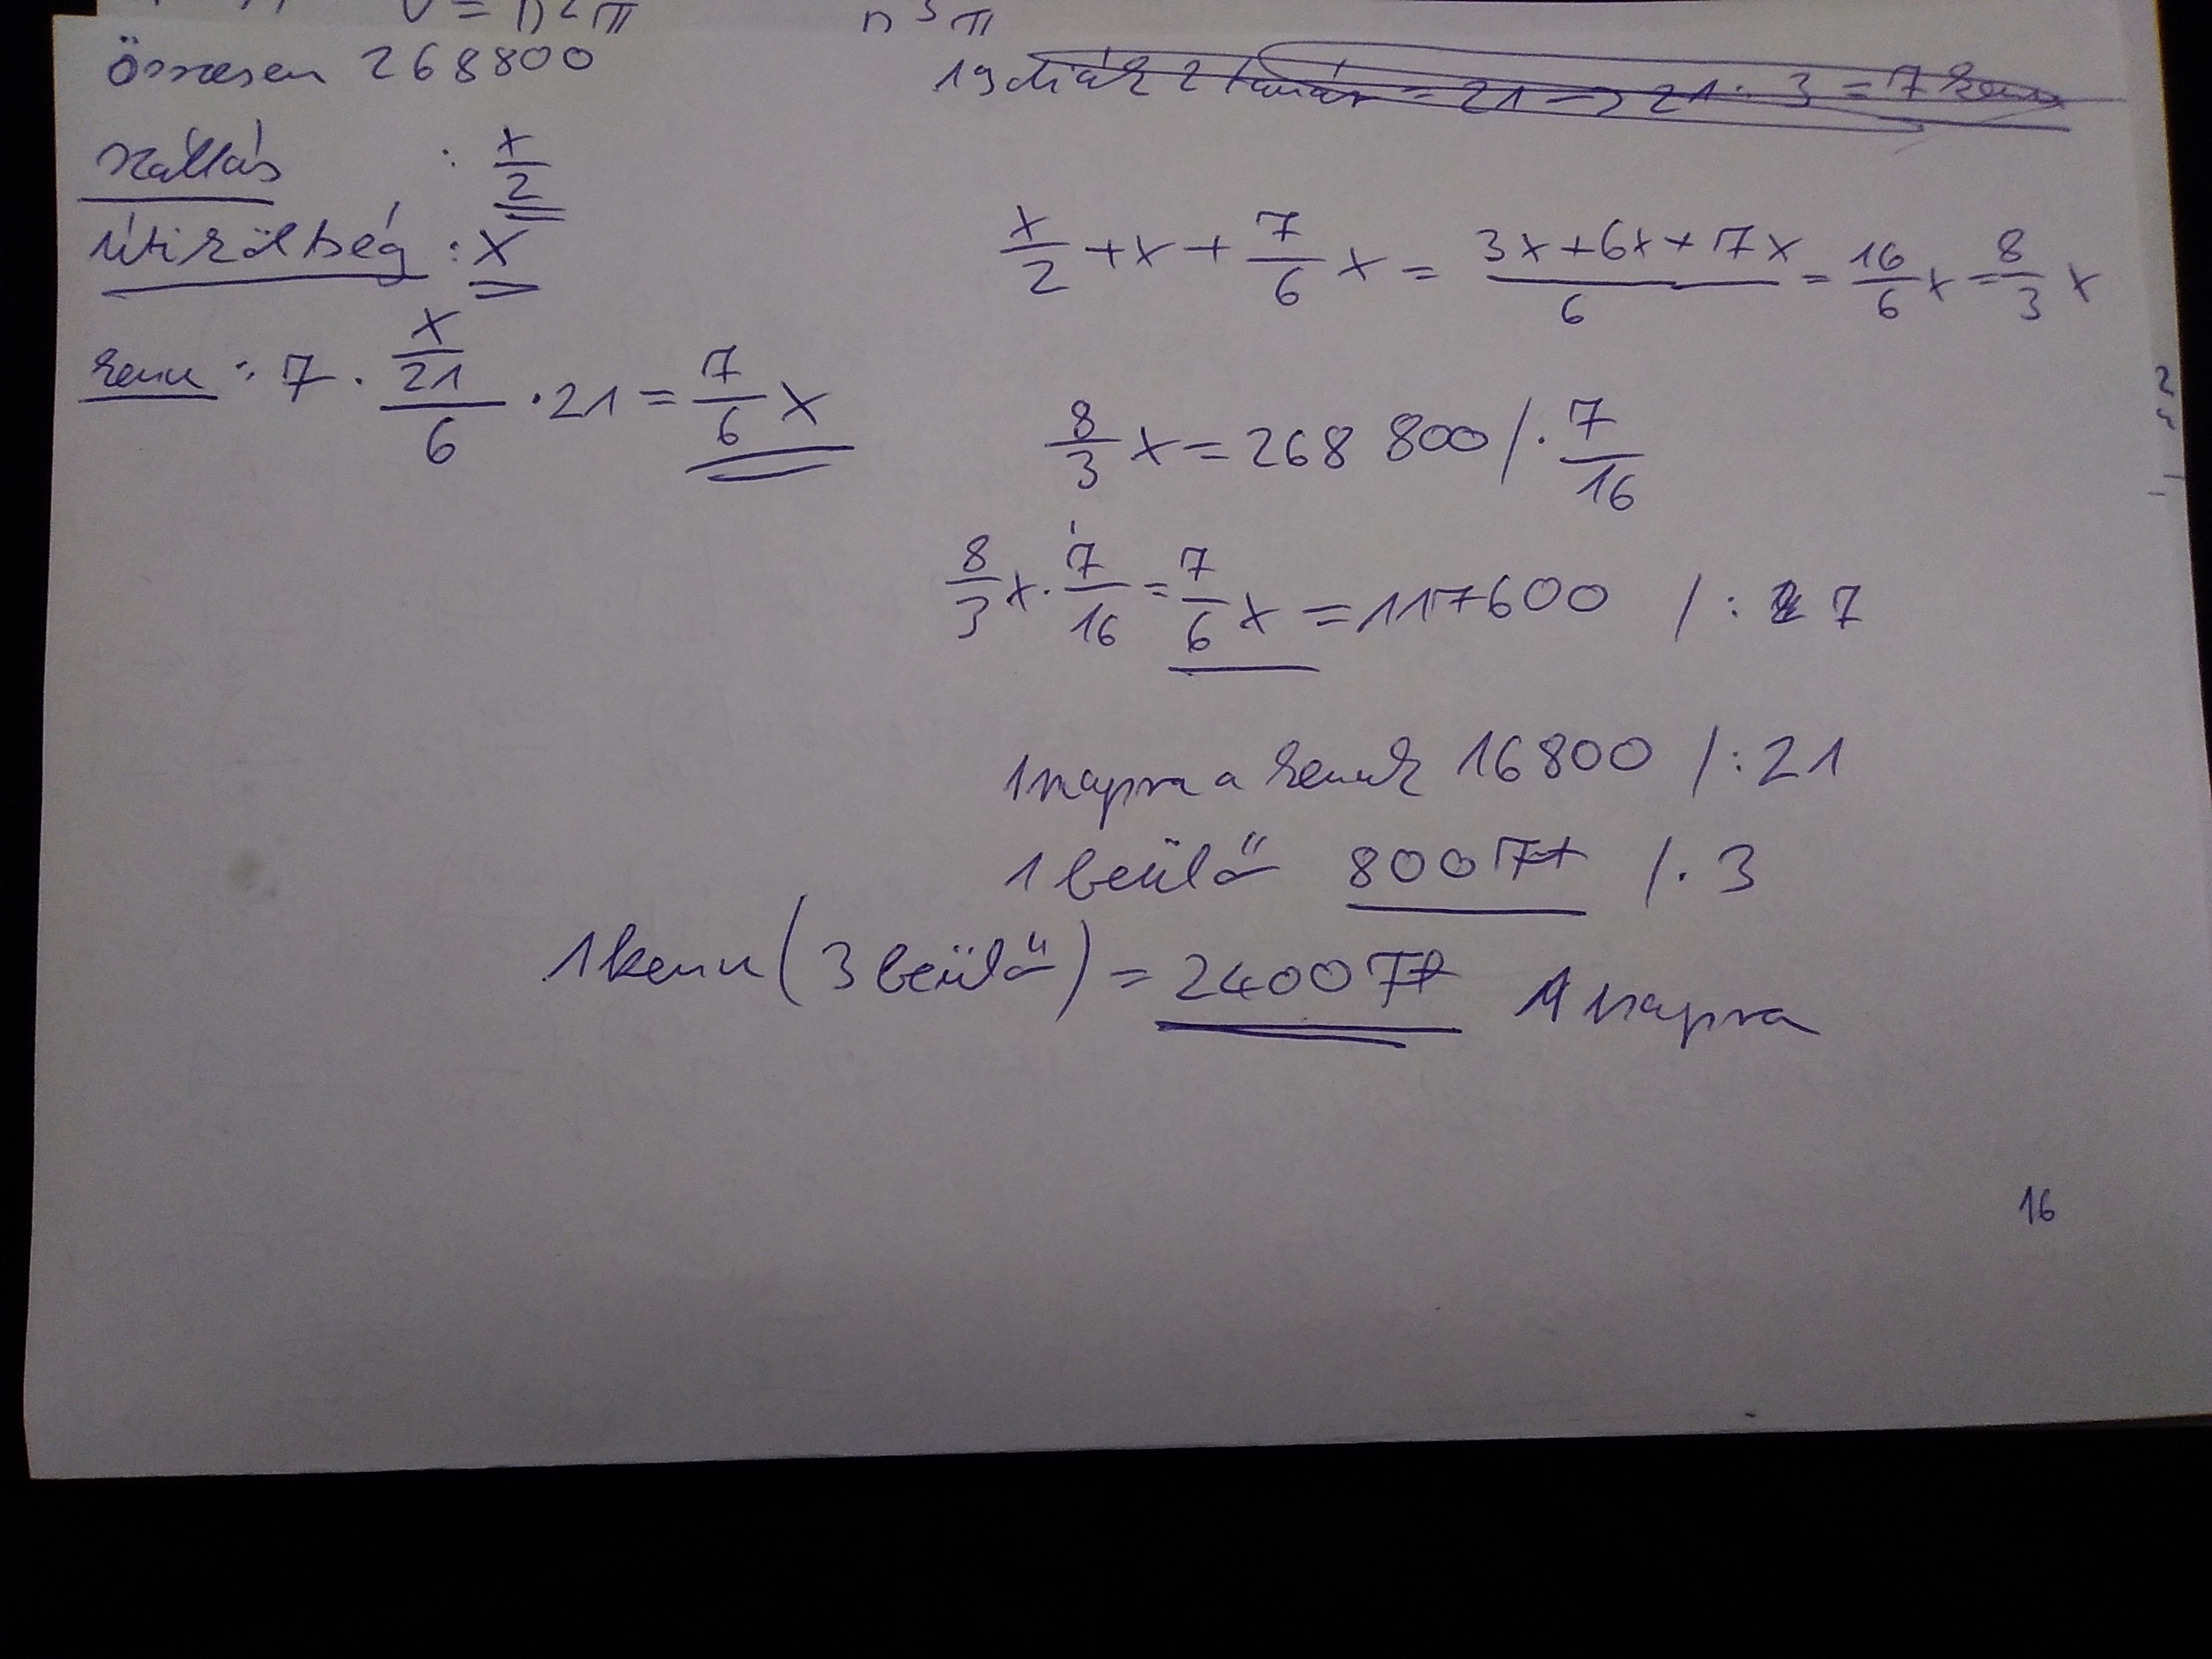 V = n²π n³π
Összesen 268800
19 diák 2 tanár = 21 → 21 · 3 = 7 kenu
szállás : x/2
útiköltség : x
x/2 + x + 7/6 x = (3x+6x+7x)/6 = 16/6 x = 8/3 x
kenu : 7 · (x/21)/6 · 21 = 7/6 x
8/3 x = 268 800 / · 7/16
8/3 x · 7/16 = 7/6 x = 117600 / : 7
1 napra a kenuk 16800 / : 21
1 beülő 800 Ft / · 3
1 kenu (3 beülő) = 2400 Ft 1 napra
16